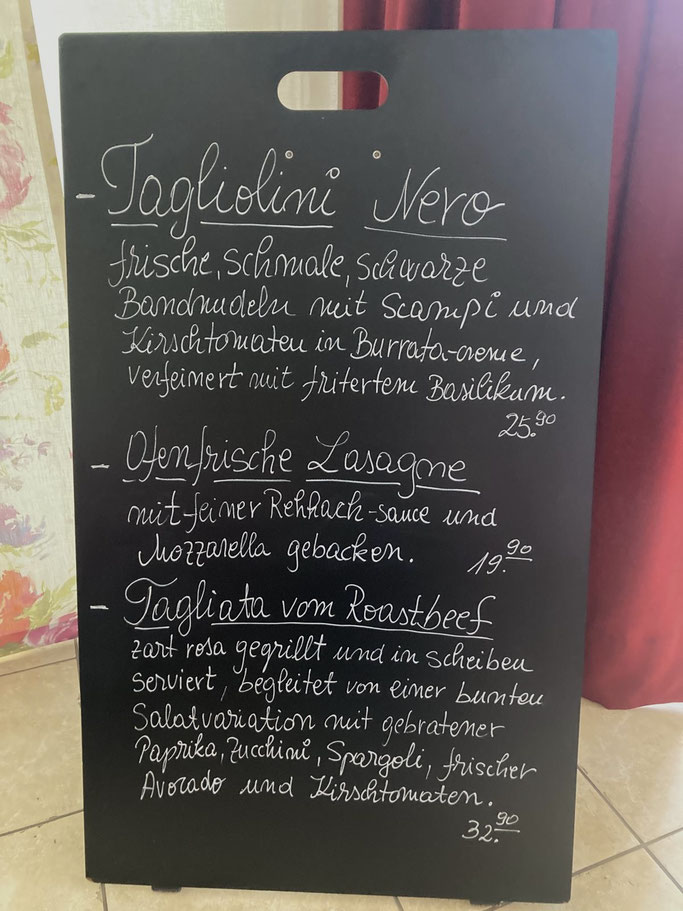 - Tagliolini Nero
frische, schmale, schwarze
Bandnudeln mit Scampi und
Kirschtomaten in Burrata-creme,
verfeinert mit fritertem Basilikum.
25.90
- Ofenfrische Lasagne
mit feiner Rehhack-sauce und
Mozzarella gebacken. 19.90
- Tagliata vom Roastbeef
zart rosa gegrillt und in Scheiben
serviert, begleitet von einer bunten
Salatvariation mit gebratener
Paprika, Zucchini, Spargoli, frischer
Avocado und Kirschtomaten.
32.90